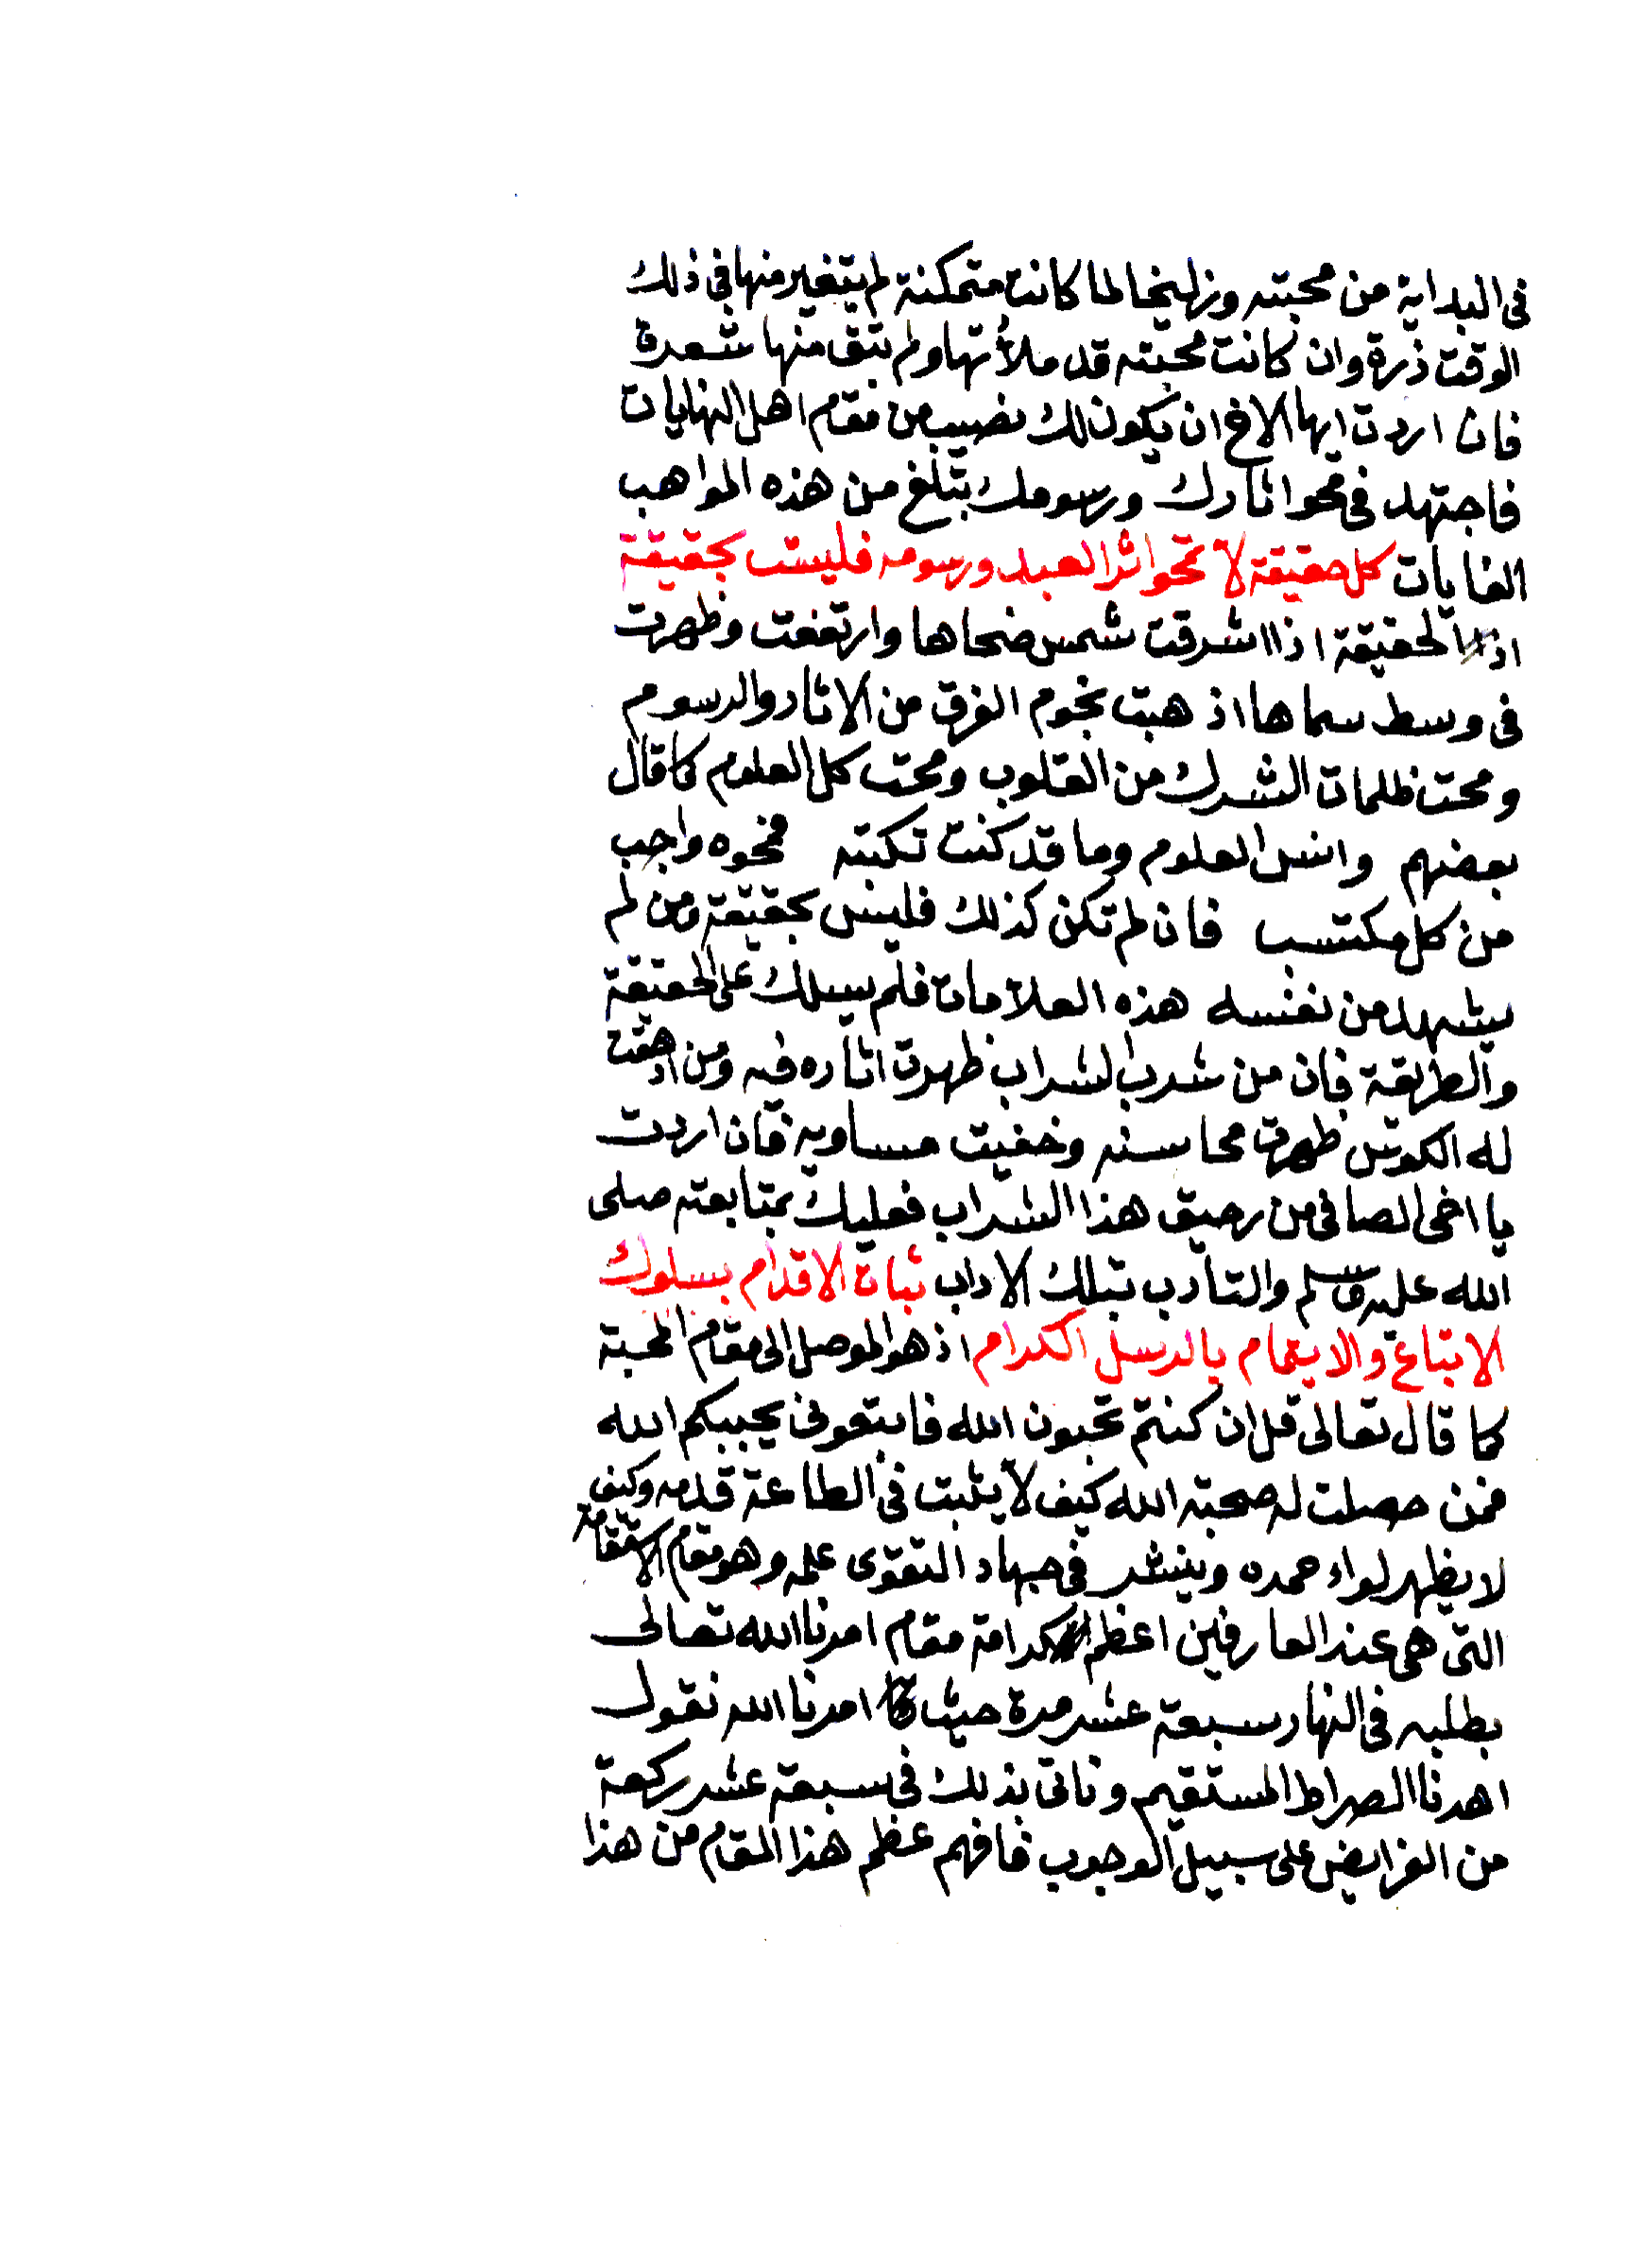 فى البداية من محبته وزليخا لما كانت متمكنة لم يتغير منها فى ذلك
الوقت ذرة وان كانت محبته قد ملأتها ولم تبق منها شعرة
فان اردت ايها الاخ ان يكون لك نصيب من مقام اهل النهايات
فاجتهد فى محو اثارك ورسومك تبلغ من هذه المواهب
الغايات كل حقيقة لا تمحو اثر العبد ورسومه فليست بحقيقة
اذ الحقيقة اذا اشرقت شمس ضحاها وارتفعت وظهرت
فى وسط سماها اذهبت نجوم الفرق من الاثار والرسوم
ومحت ظلمات الشرك من القلوب ومحت كل العلوم كما قال
بعضهم وانس العلوم وما قد كنت تكتبه فمحوه واجب
من كل مكتسب فان لم تكن كذلك فليس بحقيقة ومن لم
يشهد من نفسه هذه العلامات فلم يسلك على الحقيقة
والطريقة فان من شرب الشراب ظهرت اثاره فيه ومن ادهقت
له الكوس ظهرت محاسنه وخفيت مساويه فان اردت
يا اخى الصافى من رحيق هذا الشراب فعليك بمتابعته صلى
الله عليه وسلم والتأدب بتلك الاداب ثبات الاقدام بسلوك
الاتباع والايتمام بالرسل الكرام اذ هو الموصل الى مقام المحبة
كما قال تعالى قل ان كنتم تحبون الله فاتبعونى يحببكم الله
فمن حصلت له صحبة الله كيف لا يثبت فى الطاعة قدمه وكيف
لا يظهر لواء حمده وينشر فى جهاد التقوى علمه وهو مقام الاستقامة
التى هى عند العارفين اعظم كرامة مقام امرنا الله تعالى
بطلبه فى النهار سبعة عشر مرة حيث امرنا الله نقول
اهدنا الصراط المستقيم وناتى بذلك فى سبعة عشر ركعة
من الفرايض على سبيل الوجوب فافهم عظم هذا المقام من هذا